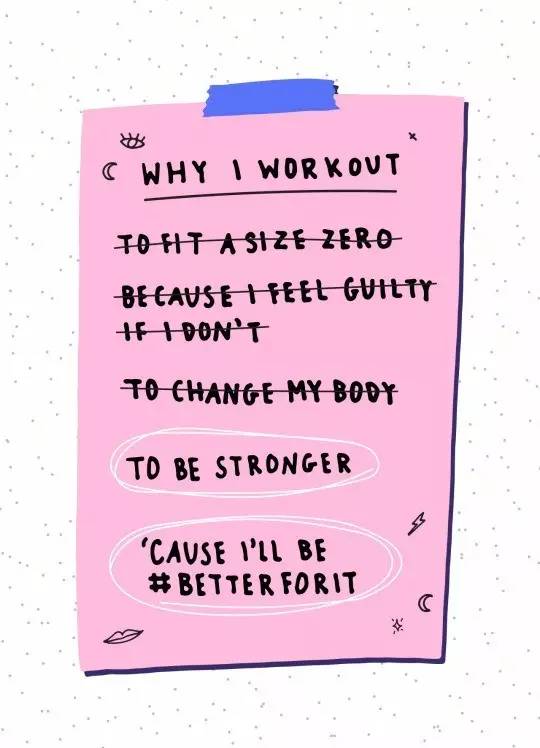 WHY I WORKOUT
TO FIT A SIZE ZERO
BECAUSE I FEEL GUILTY
IF I DON'T
TO CHANGE MY BODY
TO BE STRONGER
'CAUSE I'LL BE
#BETTERFORIT